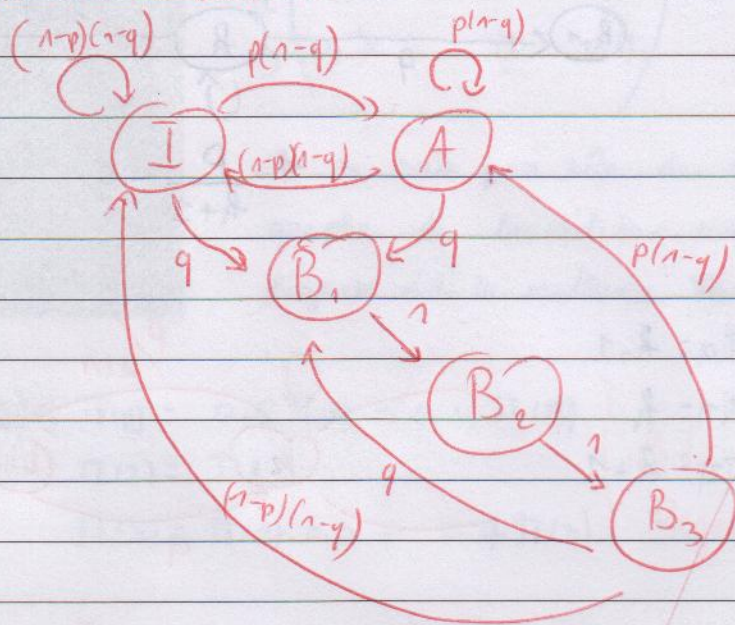 (1-p)(1-q)
p(1-q)
p(1-q)
I
(1-p)(1-q)
A
q
q
p(1-q)
B1
1
B2
1
q
(1-p)(1-q)
B3